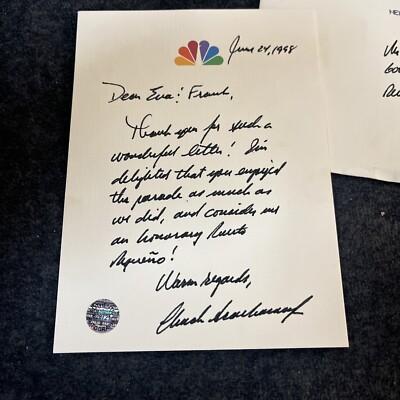 June 24, 1998
Dear Eva & Frank,
Thank you for such a
wonderful letter! I'm
delighted that you enjoyed
the parade as much as
we did, and consider me
an honorary Puerto
Riqueño!
Warm regards,
Chuck Scarborough
HE